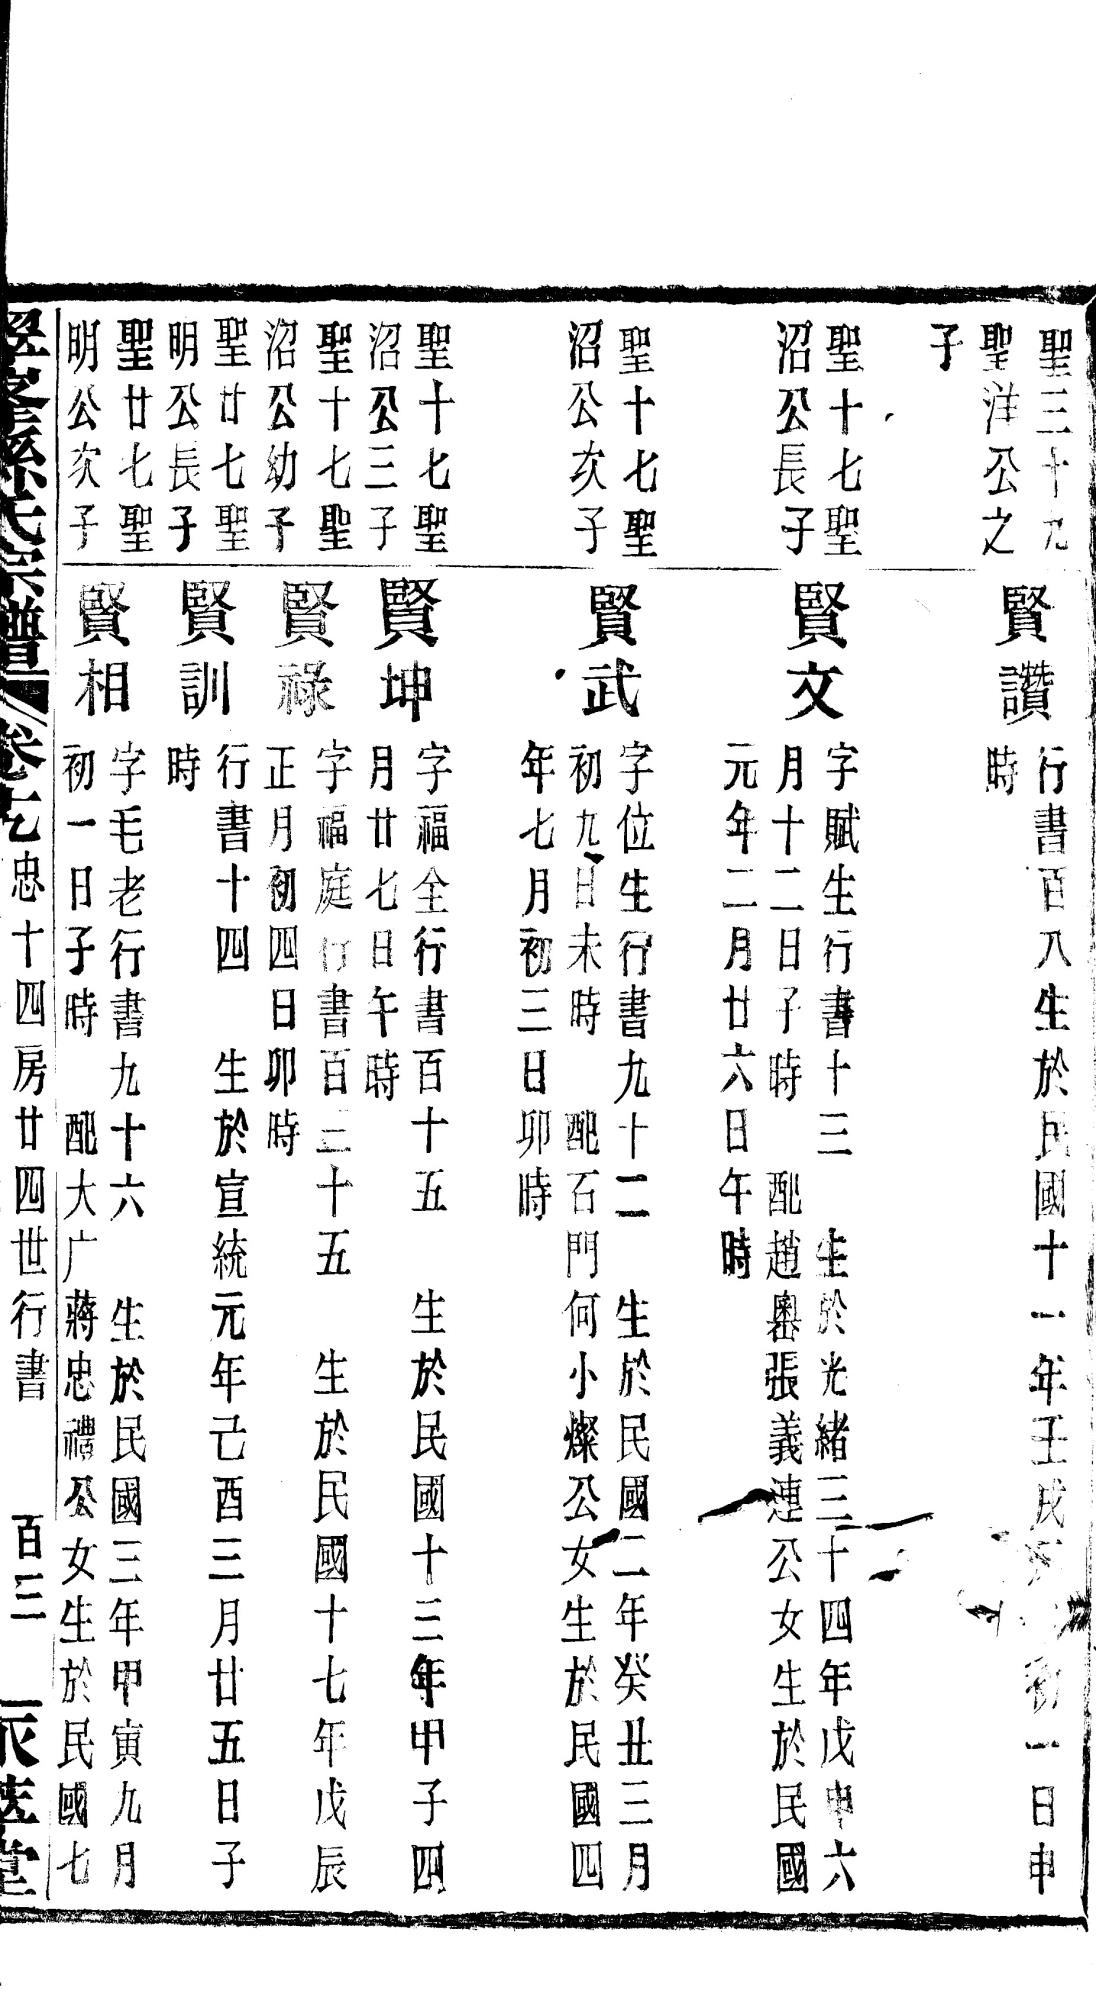 聖三十九
聖洋公之
子
賢讚
行書百八生於民國十一年壬戌初一日申
時
聖十七聖
沼公長子
賢文
字賦生行書十三　生於光緒三十四年戊申六
月十二日子時　配趙嶴張義連公女生於民國
元年二月廿六日午時
聖十七聖
沼公次子
賢武
字位生行書九十二　生於民國二年癸丑三月
初九日未時　配石門何小燦公女生於民國四
年七月初三日卯時
聖十七聖
沼公三子
賢坤
字福全行書百十五　生於民國十三年甲子四
月廿七日午時
聖十七聖
沼公幼子
賢祿
字福庭行書百三十五　生於民國十七年戊辰
正月初四日卯時
聖廿七聖
明公長子
賢訓
行書十四　生於宣統元年己酉三月廿五日子
時
聖廿七聖
明公次子
賢相
字毛老行書九十六　生於民國三年甲寅九月
初一日子時　配大广蔣忠禮公女生於民國七
氏宗譜　忠十四房廿四世行書　百三　堂